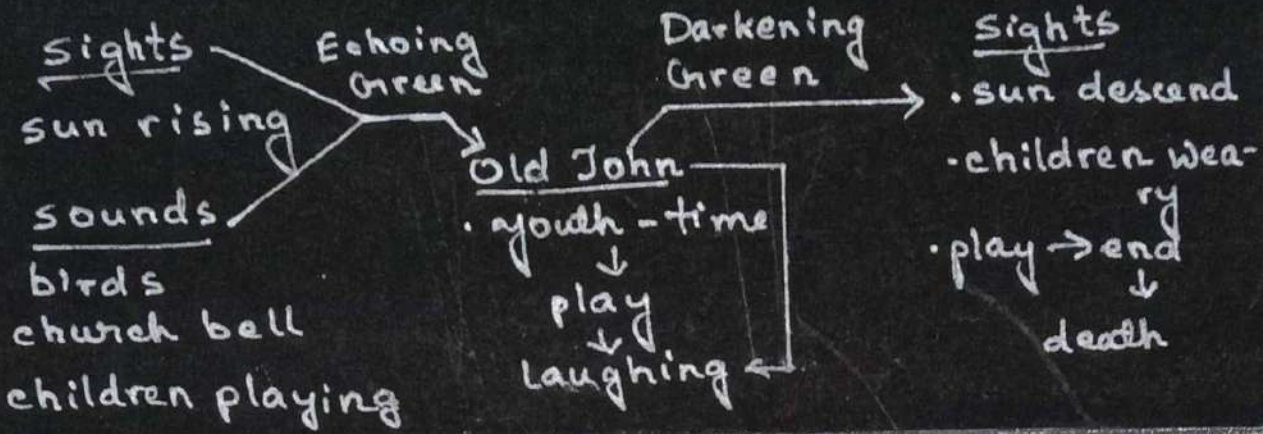 Sights
sun rising
sounds
birds
church bell
children playing
Echoing
Green
Old John
• youth - time
↓
play
↓
Laughing
Darkening
Green
Sights
• sun descend
- children wea-
ry
• play → end
↓
death